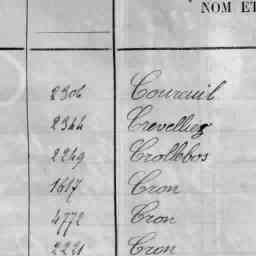 NOM ET
2306 Coureuil
2344 Crevelliez
2249 Crollebos
1617 Cron
4772 Cron
2221 Cron